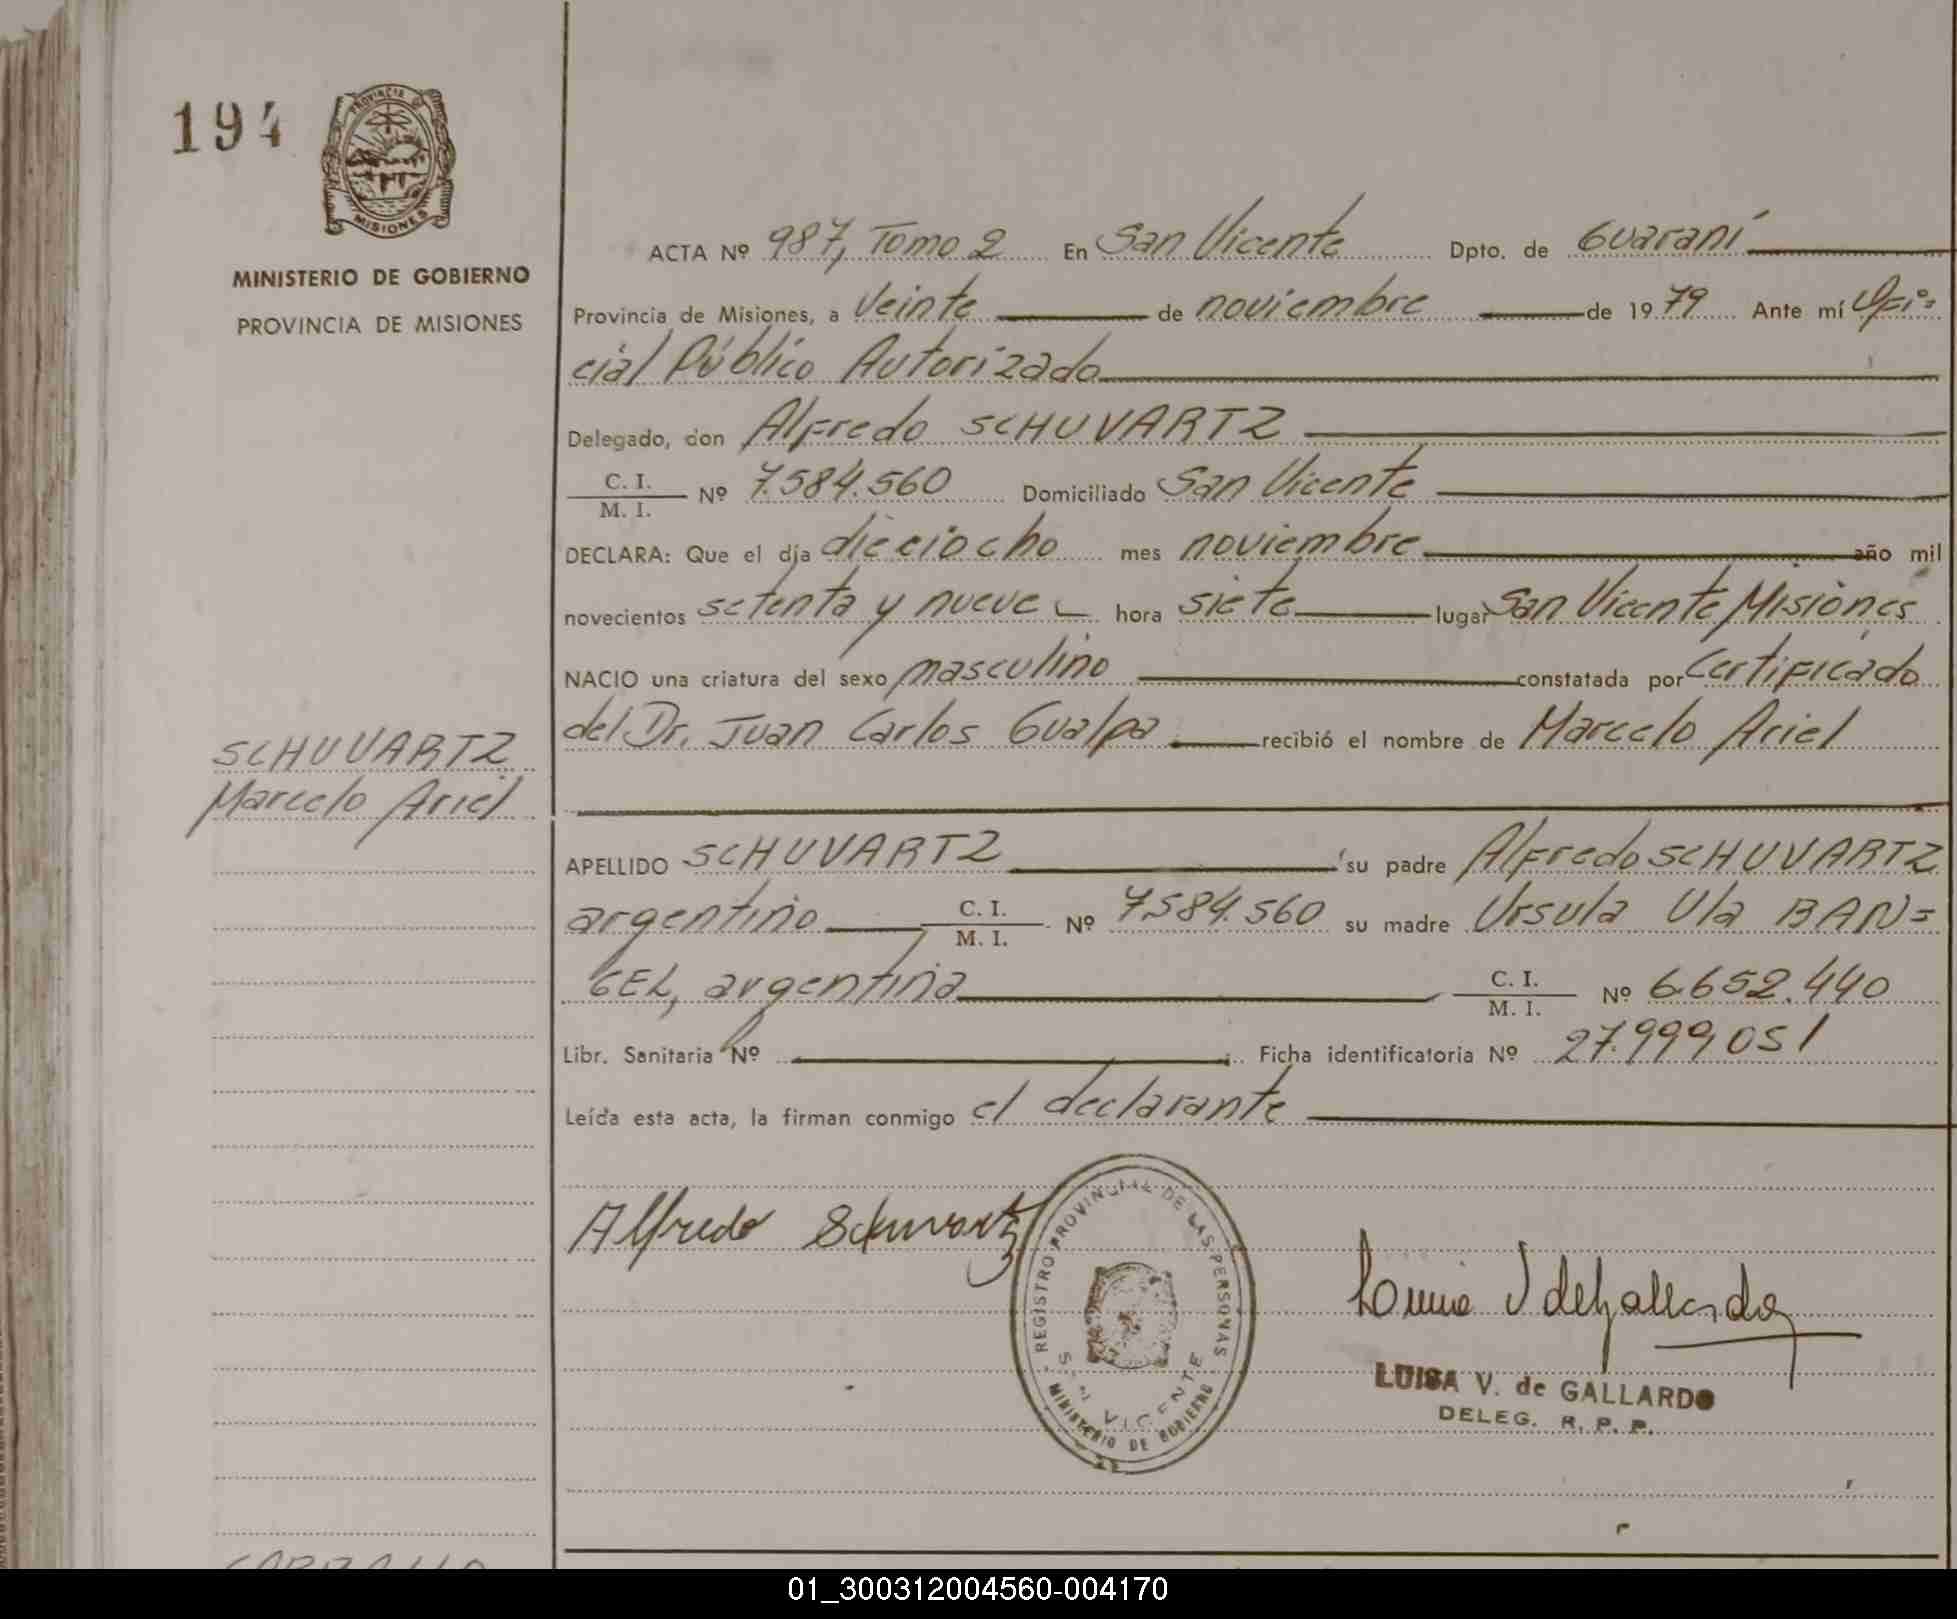 194
PROVINCIA D
MISIONES
MINISTERIO DE GOBIERNO
PROVINCIA DE MISIONES
SCHUVARTZ
Marcelo Ariel
ACTA Nº 987, Tomo 2 En San Vicente Dpto. de Guaraní
Provincia de Misiones, a Veinte de noviembre de 1979 Ante mí Ofi=
cial Público Autorizado
Delegado, don Alfredo SCHUVARTZ
C. I.
M. I. Nº 7.584.560 Domiciliado San Vicente
DECLARA: Que el día dieciocho mes noviembre año mil
novecientos setenta y nueve hora siete lugar San Vicente, Misiones
NACIO una criatura del sexo masculino constatada por Certificado
del Dr. Juan Carlos Gualpa recibió el nombre de Marcelo Ariel
APELLIDO SCHUVARTZ su padre Alfredo SCHUVARTZ
argentino C. I. M. I. Nº 7.584.560 su madre Ursula Ula BAN=
GEL, argentina C. I. M. I. Nº 6.652.440
Libr. Sanitaria Nº Ficha identificatoria Nº 27.999,051
Leída esta acta, la firman conmigo el declarante
Alfredo Schuvartz
REGISTRO PROVINCIAL DE LAS PERSONAS
SAN VICENTE
MINISTERIO DE GOBIERNO
de Gallardo
LUISA V. de GALLARDO
DELEG. R. P. P.
01_300312004560-004170